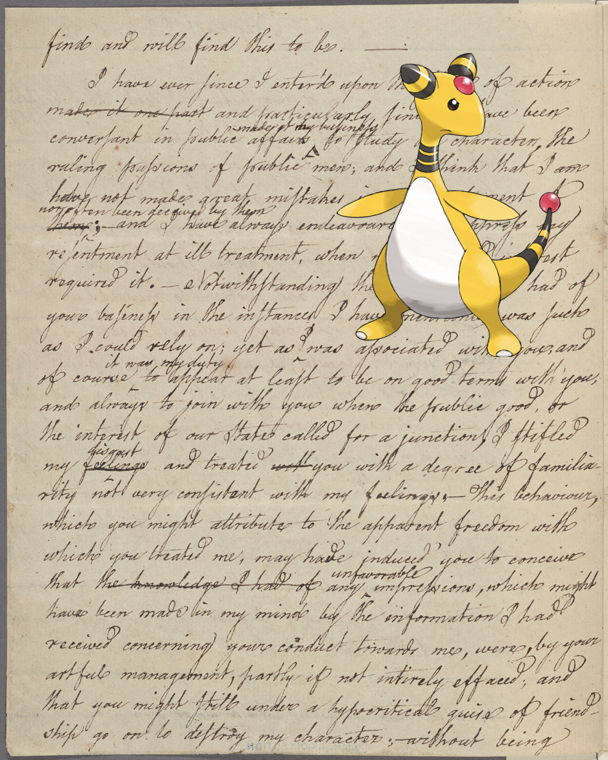 find and will find this to be. —
I have ever since I enter'd upon of action
make it one part and particularly since have been
made it my business
conversant in public affairs to study character, the
ruling passions of public men; and think that I am
have not made great mistakes in
nor been deceived by them
them; and I have always endeavoured my
resentment at ill treatment, when
required it. — Notwithstanding the had of
your baseness in the instances I have mentioned was such
as I could rely on; yet as I was associated with you, and
it was my duty
of course to appear at least to be on good terms with you,
and always to join with you when the public good, or
the interest of our State called for a junction, I stifled
disgust
my feelings and treated well you with a degree of familia-
rity not very consistent with my feelings, — This behaviour,
which you might attribute to the apparent freedom with
which you treated me, may have induced you to conceive
unfavorable
that the knowledge I had of any impressions, which might
have been made in my mind by the information I had
received concerning your conduct towards me, were, by your
artful management, partly if not intirely effaced; and
that you might still under a hypocritical guise of friend-
ship go on to destroy my character, without being